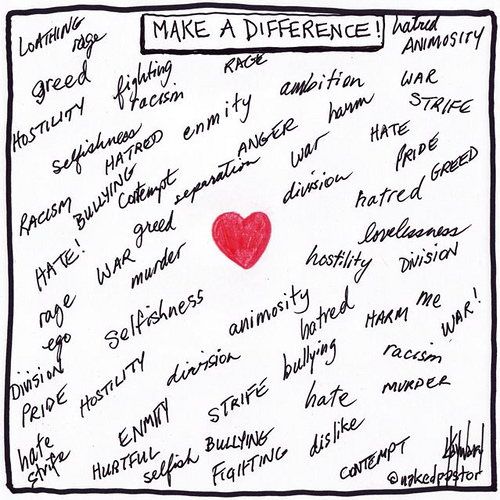 MAKE A DIFFERENCE!
LOATHING
rage
hatred
ANIMOSITY
greed
fighting
RAGE
racism
ambition
WAR
HOSTILITY
enmity
harm
STRIFE
selfishness
HATRED
ANGER
war
HATE
PRIDE
BULLYING
Contempt
separation
division
hatred
GREED
RACISM
HATE!
WAR
greed
murder
lovelessness
hostility
DIVISION
rage
ego
selfishness
animosity
hatred
HARM
me
WAR!
DIVISION
PRIDE
HOSTILITY
division
bullying
racism
MURDER
hate
strife
ENMITY
STRIFE
hate
HURTFUL
selfish
BULLYING
FIGIFTING
dislike
CONTEMPT
@nakedpastor